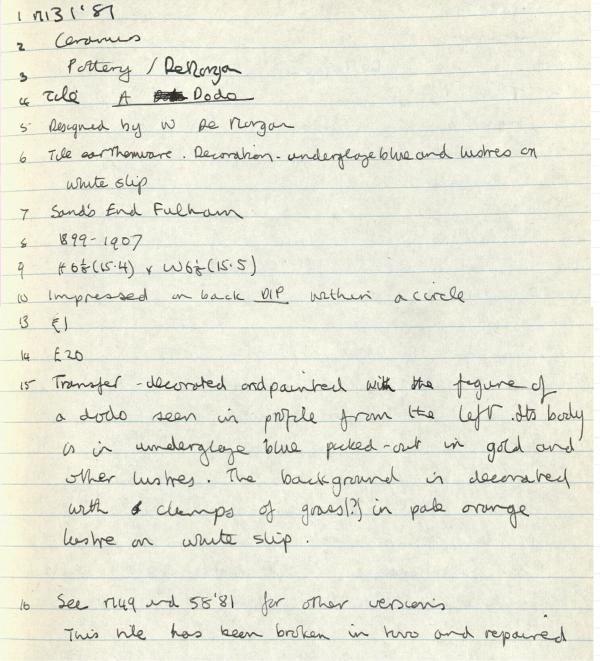 1 M131'81
2 Ceramics
3 Pottery / De Morgan
4 Tile A Dodo
5 Designed by W De Morgan
6 Tile earthenware. Decoration - underglaze blue and lustres on
white slip
7 Sand's End Fulham
8 1899-1907
9 H 6⅛ (15.4) x W 6⅛ (15.5)
10 Impressed on back DIP within a circle
13 £1
14 £20
15 Transfer-decorated and painted with the figure of
a dodo seen in profile from the left. Its body
is in underglaze blue picked-out in gold and
other lustres. The background is decorated
with clumps of grass(?) in pale orange
lustre on white slip.
16 See M49 and 58'81 for other versions
This tile has been broken in two and repaired